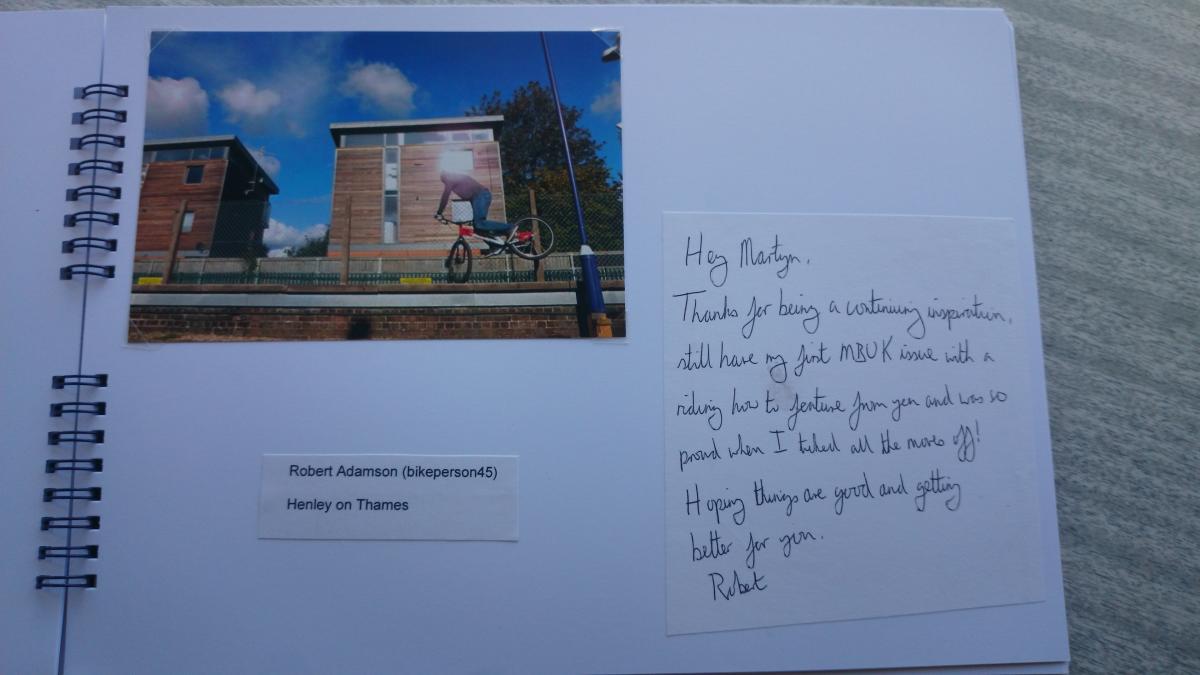 Robert Adamson (bikeperson45)
Henley on Thames
Hey Martyn,
Thanks for being a continuing inspiration,
still have my first MBUK issue with a
riding how to feature from you and was so
proud when I ticked all the moves off!
Hoping things are good and getting
better for you.
Robert